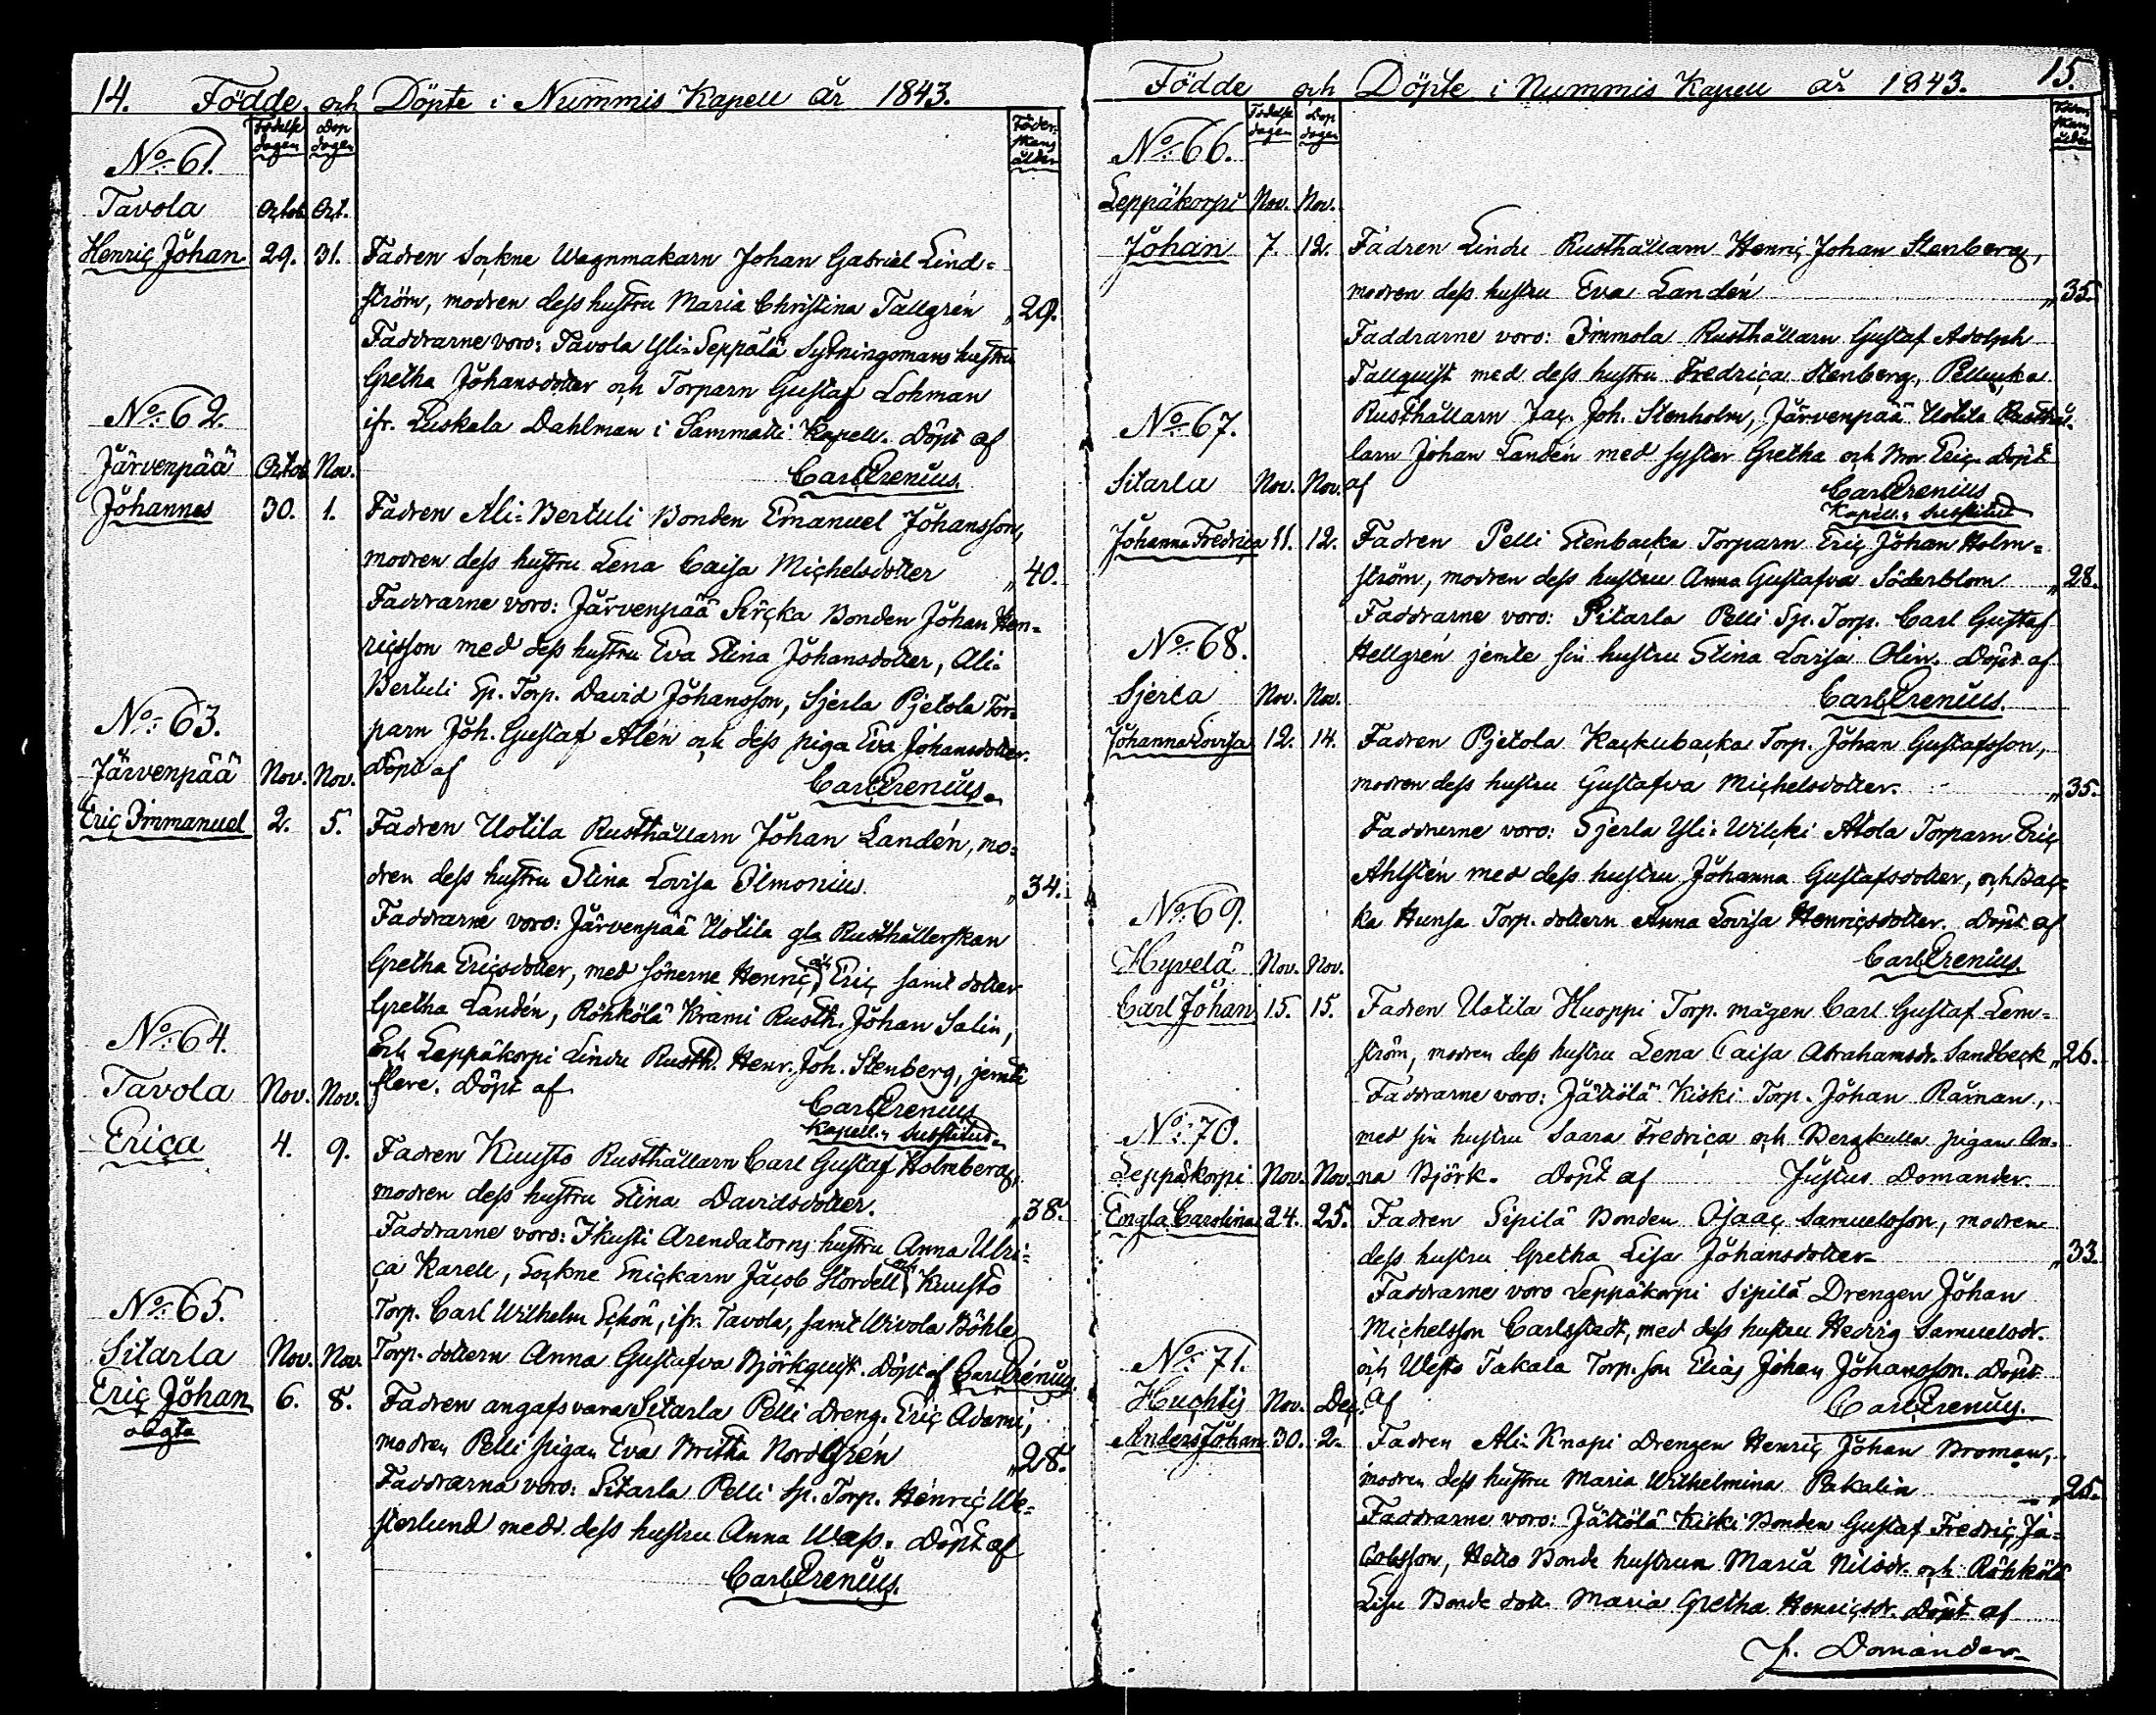 14. Födde och Döpte i Nummis Kapell år 1843.
Födelse dagen
Dop dagen
Föder- skans ålder
No 61.
Tavola Octob. Oct.
Henric Johan 29. 31. Fadren Sockne Wagnmakarn Johan Gabriel Lind=
ström, modren dess hustru Maria Christina Tallgrén „ 29.
Faddrarne voro: Tavola Yli-Seppälä Sytningsmans hustru
Gretha Johansdotter och Torparn Gustaf Lohman
ifr. Luskala Dahlman i Sammatti Kapell. Döpt af
Carl Prenius.
No 62.
Järvenpää Octob. Nov.
Johannes 30. 1. Fadren Ali-Bertuli Bonden Emanuel Johansson,
modren dess hustru Lena Caisa Michelsdotter „ 40.
Faddrarne voro: Järvenpää Sircka Bonden Johan Hen=
ricsson med dess hustru Eva Stina Johansdotter, Ali-
Bertuli Sp. Torp. David Johansson, Sjerla Pjetola Tor=
parn Joh. Gustaf Alén och dess piga Eva Johansdotter.
Döpt af Carl Prenius.
No 63.
Järvenpää Nov. Nov.
Eric Immanuel 2. 5. Fadren Uotila Rusthållarn Johan Landén, mo=
dren dess hustru Stina Lovisa Ilmonius. „ 34.
Faddrarne voro: Järvenpää Uotila gla Rusthållerskan
Gretha Ericsdotter, med sönerne Henric och Eric samt dotter
Gretha Landén, Röhkölä Krami Rusth. Johan Salin,
och Leppäkorpi Lindu Rusth. Henr. Joh. Stenberg, jemte
flere. Döpt af Carl Prenius
Kapell. substitut
No 64.
Tavola Nov. Nov.
Erica 4. 9. Fadren Kuusto Rusthållarn Carl Gustaf Holmberg,
modren dess hustru Stina Davidsdotter. „ 38.
Faddrarne voro: Ikusti Arendatorns hustru Anna Ulri=
ca Karell, Sockne Snickarn Jacob Hordell och Kuusto
Torp. Carl Wilhelm Schön, ifr. Tavola, samt Wivola Böhle
Torp. dottern Anna Gustafva Björkquist. Döpt af Carl Prenius.
No 65.
Sitarla Nov. Nov.
Eric Johan 6. 8. Fadren angafs vara Sitarla Pelli dreng. Eric Adami,
oägta modren Pelli pigan Eva Britha Nordgrén „ 28.
Faddrarna voro: Sitarla Pelli Sp. Torp. Henric We=
sterlund med dess hustru Anna Wass. Döpt af
Carl Prenius.
Födde och Döpte i Nummis Kapell år 1843. 15.
Födelse dagen
Dop dagen
Föder- skans ålder
No 66.
Leppäkorpi Nov. Nov.
Johan 7. 12. Fadren Lindu Rusthållarn Henric Johan Stenberg,
modren dess hustru Eva Landén „ 35.
Faddrarne voro: Immola Rusthållarn Gustaf Adolph
Tallquist med dess hustru Fredrica Stenberg,
Rusthållarn Jac. Joh. Stenholm, Järvenpää Uotila Rusthål-
larn Johan Landén med syster Gretha och Bror Eric. Döpt
af Carl Prenius
Kapell. substitut
No 67.
Sitarla Nov. Nov.
Johanna Fredrica 11. 12. Fadren Pelli Stenbacka Torparn Eric Johan Holm=
ström, modren dess hustru Anna Gustafva Söderblom „ 28.
Faddrarne voro: Sitarla Pelli Sp. Torp. Carl Gustaf
Hellgrén jemte sin hustru Stina Lovisa Olin. Döpt af
Carl Prenius.
No 68.
Sjerla Nov. Nov.
Johanna Lovisa 12. 14. Fadren Pjetola Kackubacka Torp. Johan Gustafsson,
modren dess hustru Gustafva Michelsdotter. „ 35.
Faddrarne voro: Sjerla Yli-Wilcki Atola Torparn Eric
Ahlstén med dess hustru Johanna Gustafsdotter, och Bac=
ka Hunsa Torp. dottern Anna Lovisa Henricsdotter. Döpt af
Carl Prenius.
No 69.
Hyvelä Nov. Nov.
Carl Johan 15. 15. Fadren Uotila Huoppi Torp. mågen Carl Gustaf Lem=
ström, modren dess hustru Lena Caisa Abrahamsdr. Sandbeck „ 26.
Faddrarne voro: Jättölä Kiski Torp. Johan Råman,
med sin hustru Saara Fredrica och Bergkulla pigan An-
na Björk. Döpt af Justus Domander.
No 70.
Leppäkorpi Nov. Nov.
Engla Carolina 24. 25. Fadren Sipilä Bonden Isaac Samuelsson, modren
dess hustru Gretha Lisa Johansdotter. „ 33.
Faddrarne voro Leppäkorpi Sipilä Drengen Johan
Michelsson Carlstedt, med dess hustru Hedvig Samuelsdr.
och Westo Takala Torp. son Elias Johan Johansson. Döpt
af Carl Prenius.
No 71.
Huchtis Nov. Dec.
Anders Johan 30. 2. Fadren Ali-Knapi drengen Henric Johan Broman,
modren dess hustru Maria Wilhelmina Pakalin „ 25.
Faddrarne voro: Jättölä Kiski Bonden Gustaf Fredric Ja=
cobsson, Hetto Bonde hustrun Maria Nilsdr. och Röhkölä
Lisu Bonde dott. Maria Gretha Henricsdr. Döpt af
J. Domander.